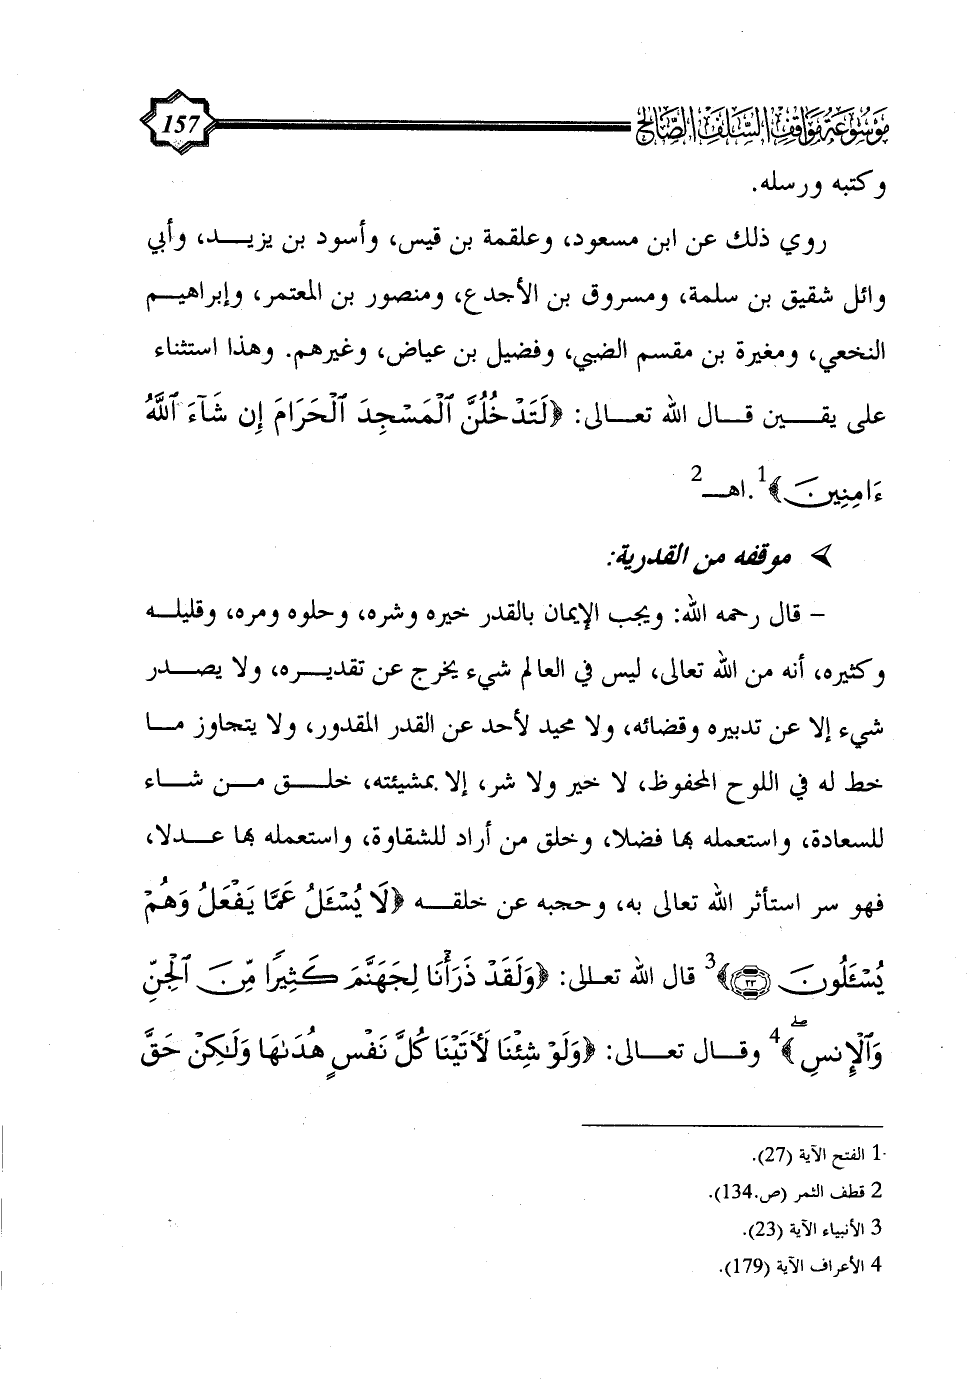 موسوعة مواقف السلف الصالح
157
وكتبه ورسله.
روي ذلك عن ابن مسعود، وعلقمة بن قيس، وأسود بن يزيد، وأبي
وائل شقيق بن سلمة، ومسروق بن الأجدع، ومنصور بن المعتمر، وإبراهيم
النخعي، ومغيرة بن مقسم الضبي، وفضيل بن عياض، وغيرهم. وهذا استثناء
على يقين قال الله تعالى: ﴿لَتَدْخُلُنَّ ٱلْمَسْجِدَ ٱلْحَرَامَ إِن شَآءَ ٱللَّهُ
ءَامِنِينَ﴾1. اهـ2
➢ موقفه من القدرية:
– قال رحمه الله: ويجب الإيمان بالقدر خيره وشره، وحلوه ومره، وقليله
وكثيره، أنه من الله تعالى، ليس في العالم شيء يخرج عن تقديره، ولا يصدر
شيء إلا عن تدبيره وقضائه، ولا محيد لأحد عن القدر المقدور، ولا يتجاوز ما
خط له في اللوح المحفوظ، لا خير ولا شر، إلا بمشيئته، خلق من شاء
للسعادة، واستعمله بها فضلا، وخلق من أراد للشقاوة، واستعمله بها عدلا،
فهو سر استأثر الله تعالى به، وحجبه عن خلقه ﴿لَا يُسْـَٔلُ عَمَّا يَفْعَلُ وَهُمْ
يُسْـَٔلُونَ ٢٣﴾3 قال الله تعالى: ﴿وَلَقَدْ ذَرَأْنَا لِجَهَنَّمَ كَثِيرًا مِّنَ ٱلْجِنِّ
وَٱلْإِنسِ ۖ﴾4 وقال تعالى: ﴿وَلَوْ شِئْنَا لَأَتَيْنَا كُلَّ نَفْسٍ هُدَىٰهَا وَلَـٰكِنْ حَقَّ
1 الفتح الآية (27).
2 قطف الثمر (ص.134).
3 الأنبياء الآية (23).
4 الأعراف الآية (179).